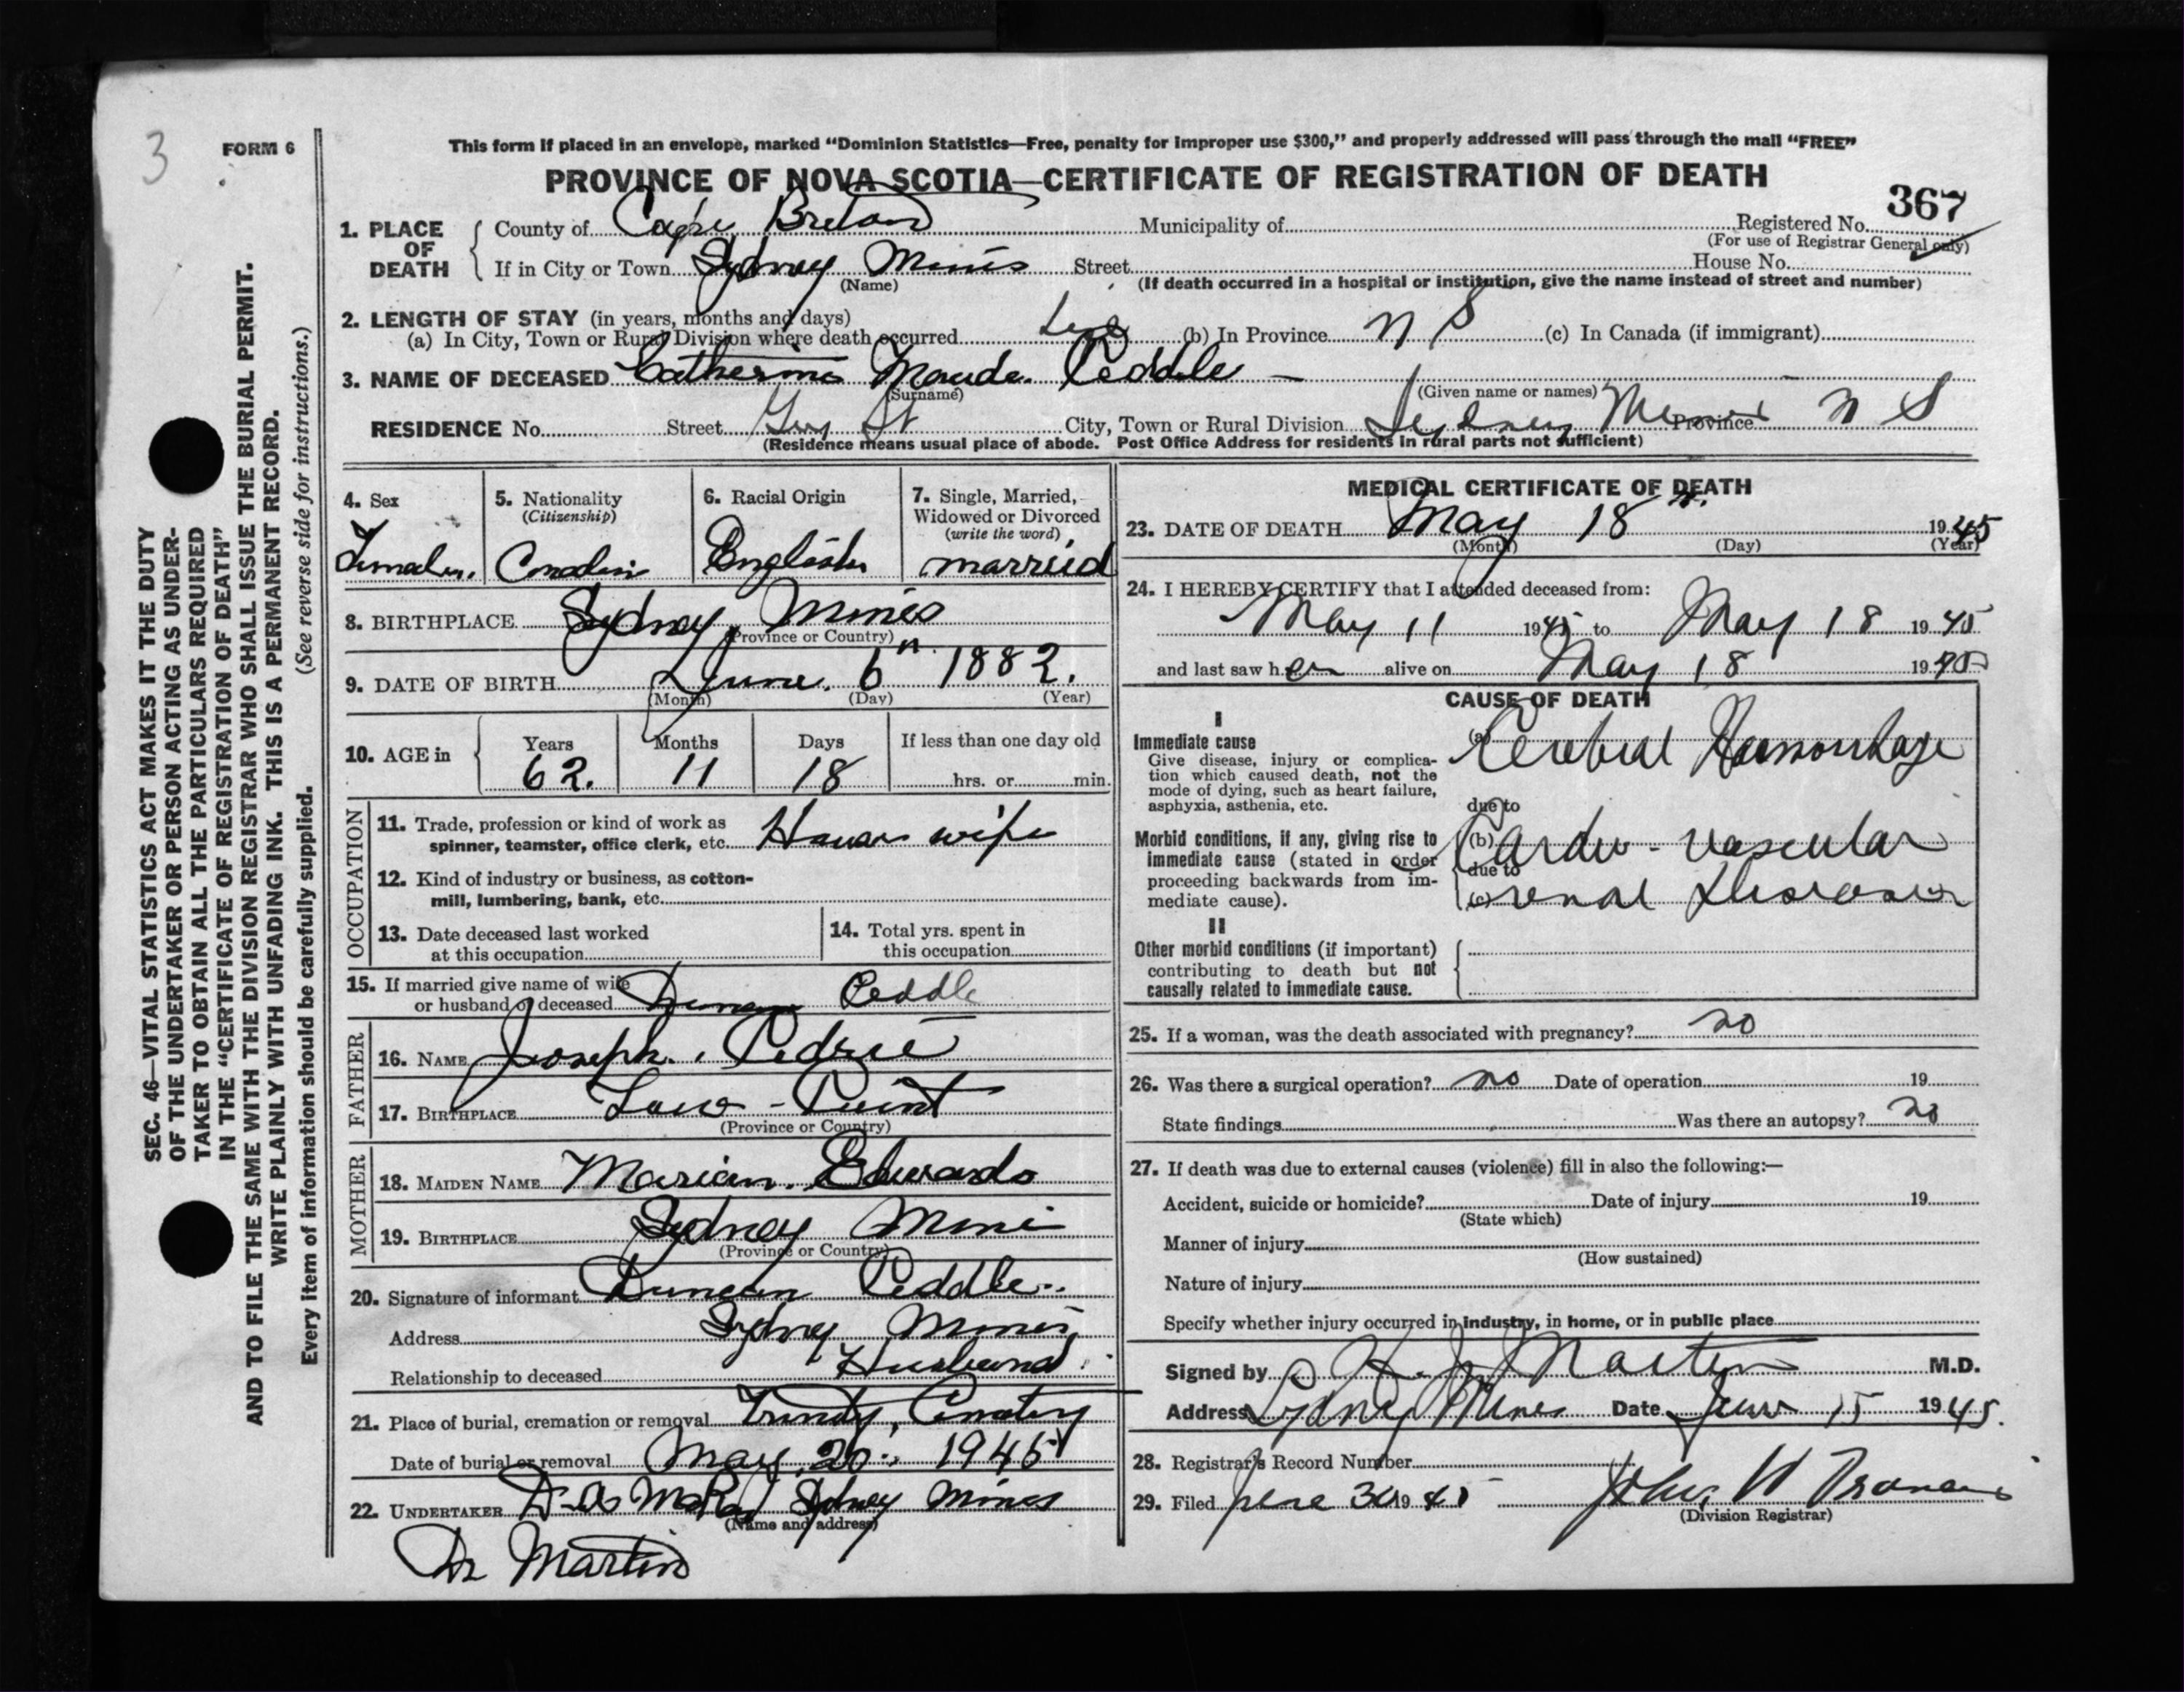 3
FORM 6
This form if placed in an envelope, marked “Dominion Statistics—Free, penalty for improper use $300,” and properly addressed will pass through the mail “FREE”
PROVINCE OF NOVA SCOTIA—CERTIFICATE OF REGISTRATION OF DEATH
367
1. PLACE OF DEATH
County of Cape Breton Municipality of Registered No.
(For use of Registrar General only)
If in City or Town Sydney Mines Street House No.
(Name) (If death occurred in a hospital or institution, give the name instead of street and number)
2. LENGTH OF STAY (in years, months and days)
(a) In City, Town or Rural Division where death occurred (b) In Province N S (c) In Canada (if immigrant)
3. NAME OF DECEASED Catherine Maude Peddle
(Surname) (Given name or names)
RESIDENCE No. Street St City, Town or Rural Division Sydney Mines Province N S
(Residence means usual place of abode. Post Office Address for residents in rural parts not sufficient)
4. Sex
Female
5. Nationality
(Citizenship)
6. Racial Origin
English
7. Single, Married,
Widowed or Divorced
(write the word)
married
8. BIRTHPLACE Sydney Mines
(Province or Country)
9. DATE OF BIRTH June 6th 1882.
(Month) (Day) (Year)
10. AGE in
Years Months Days If less than one day old
62. 11 18 hrs. or min.
OCCUPATION
11. Trade, profession or kind of work as
spinner, teamster, office clerk, etc. House wife
12. Kind of industry or business, as cotton-
mill, lumbering, bank, etc.
13. Date deceased last worked
at this occupation
14. Total yrs. spent in
this occupation
15. If married give name of wife
or husband of deceased Duncan Peddle
FATHER
16. NAME Joseph
17. BIRTHPLACE Low - Point
(Province or Country)
MOTHER
18. MAIDEN NAME Marian Edwards
19. BIRTHPLACE Sydney Mine
(Province or Country)
20. Signature of informant Duncan Peddle
Address Sydney Mines
Relationship to deceased Husband
21. Place of burial, cremation or removal Trinity Cemetery
Date of burial or removal May 20 1945
22. UNDERTAKER Sydney Mines
(Name and address)
Dr Martin
MEDICAL CERTIFICATE OF DEATH
23. DATE OF DEATH May 18th 1945
(Month) (Day) (Year)
24. I HEREBY CERTIFY that I attended deceased from:
May 11 1945 to May 18 1945
and last saw her alive on May 18 1945
CAUSE OF DEATH
I
Immediate cause
Give disease, injury or complica-
tion which caused death, not the
mode of dying, such as heart failure,
asphyxia, asthenia, etc.
(a) Cerebral Haemorrhage
due to
Morbid conditions, if any, giving rise to
immediate cause (stated in order
proceeding backwards from im-
mediate cause).
(b) Cardio-vascular
due to
(c) renal Disease
II
Other morbid conditions (if important)
contributing to death but not
causally related to immediate cause.
25. If a woman, was the death associated with pregnancy? no
26. Was there a surgical operation? no Date of operation 19
State findings Was there an autopsy? no
27. If death was due to external causes (violence) fill in also the following:—
Accident, suicide or homicide? Date of injury 19
(State which)
Manner of injury
(How sustained)
Nature of injury
Specify whether injury occurred in industry, in home, or in public place
Signed by Martin M.D.
Address Sydney Mines Date June 15 1945.
28. Registrar's Record Number
29. Filed June 30 1945 John W
(Division Registrar)
SEC. 46—VITAL STATISTICS ACT MAKES IT THE DUTY
OF THE UNDERTAKER OR PERSON ACTING AS UNDER-
TAKER TO OBTAIN ALL THE PARTICULARS REQUIRED
IN THE “CERTIFICATE OF REGISTRATION OF DEATH”
AND TO FILE THE SAME WITH THE DIVISION REGISTRAR WHO SHALL ISSUE THE BURIAL PERMIT.
WRITE PLAINLY WITH UNFADING INK. THIS IS A PERMANENT RECORD.
Every item of information should be carefully supplied. (See reverse side for instructions.)